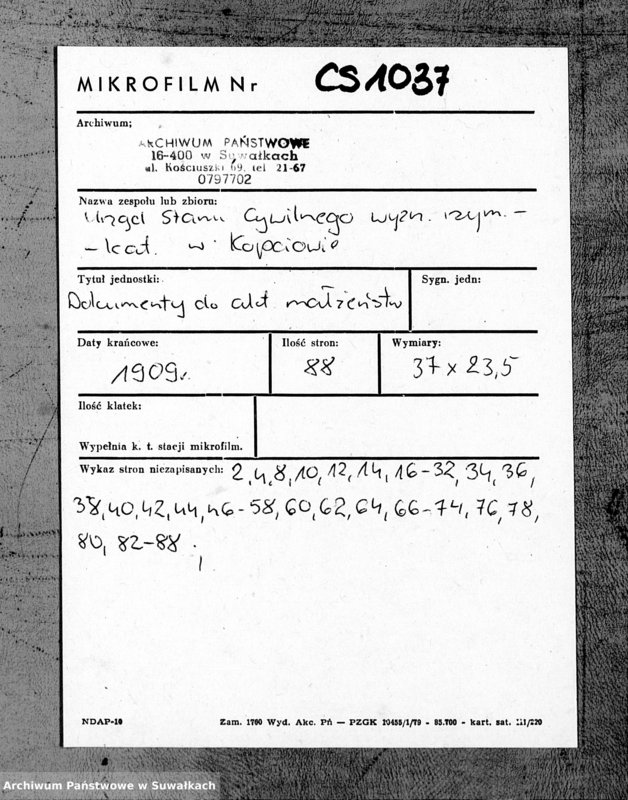 MIKROFILM Nr CS1037
Archiwum;
ARCHIWUM PAŃSTWOWE
16-400 w Suwałkach
ul. Kościuszki 69, tel 21-67
0797702
Nazwa zespołu lub zbioru:
Urząd Stanu Cywilnego wyzn. rzym. -
- kat. w Kopciowie
Tytuł jednostki: Sygn. jedn:
Dokumenty do akt małżeństw
Daty krańcowe: Ilość stron: Wymiary:
1909r. 88 37 x 23,5
Ilość klatek:
Wypełnia k. t. stacji mikrofilm.
Wykaz stron niezapisanych: 2,4,8,10,12,14,16-32,34,36,
38,40,42,44,46-58,60,62,64,66-74,76,78,
80, 82-88
NDAP-10 Zam. 1760 Wyd. Akc. Pń — PZGK 10455/1/79 - 85.700 - kart. sat. III/220
Archiwum Państwowe w Suwałkach